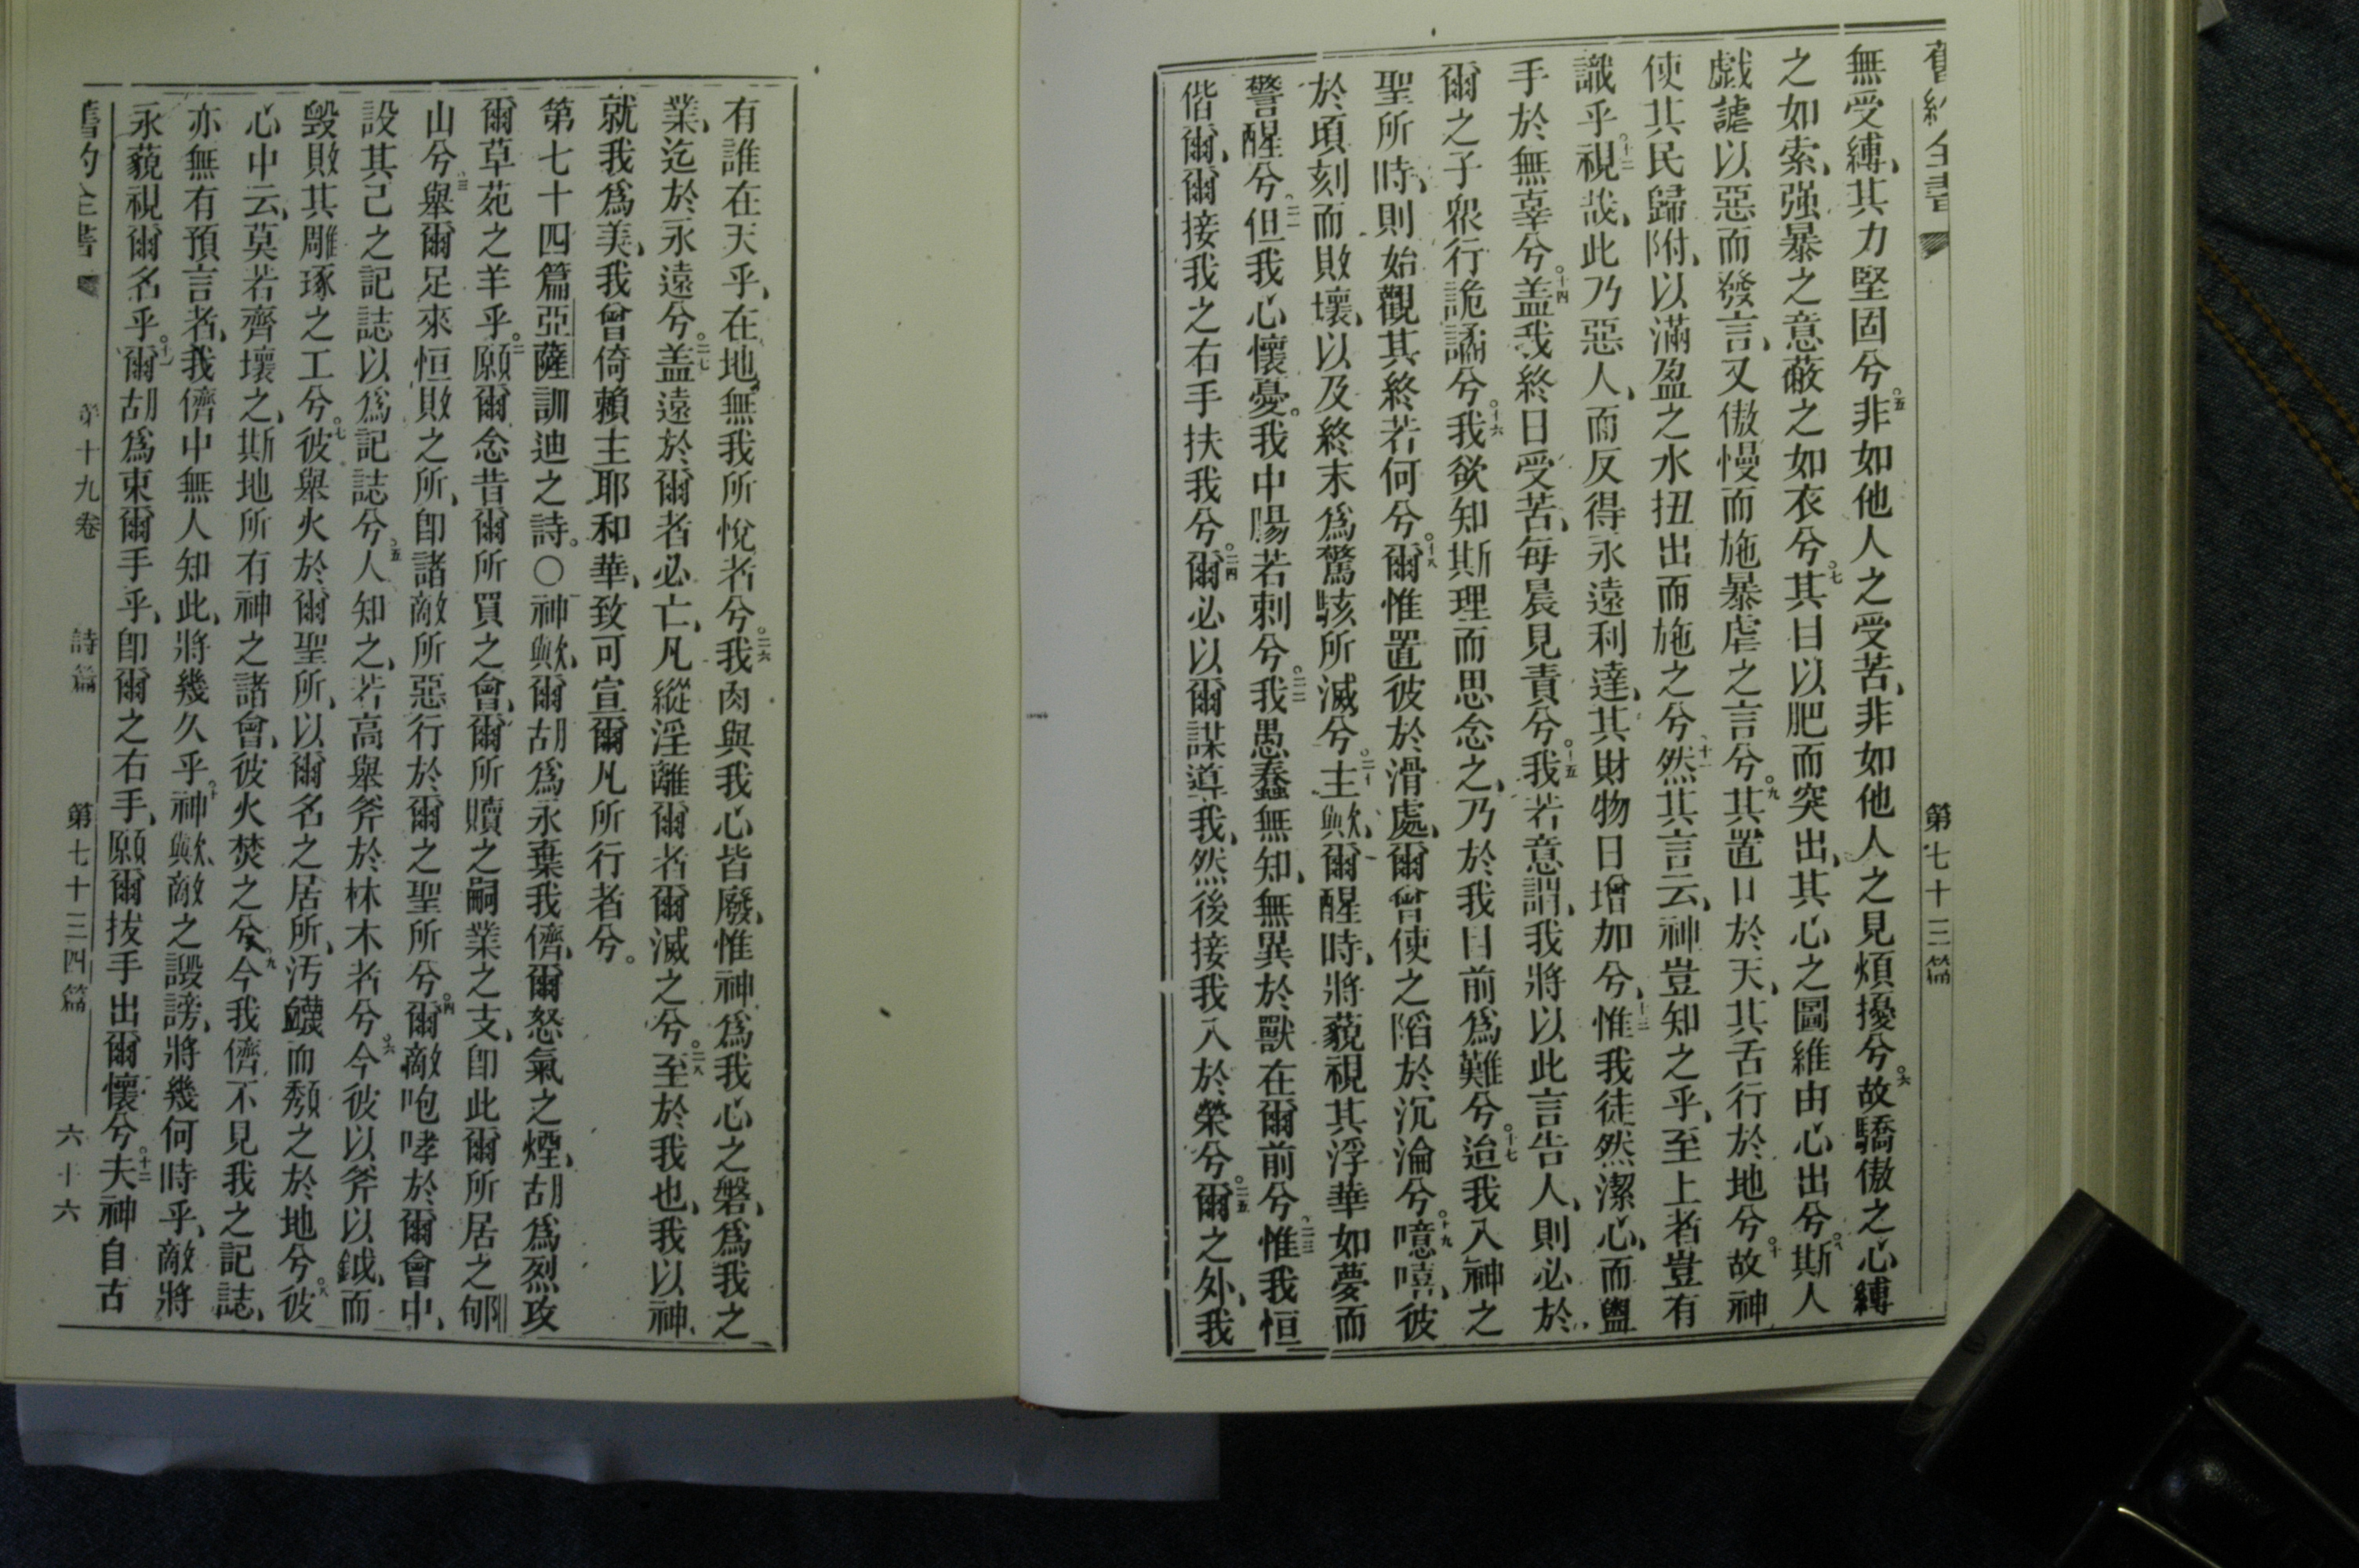 舊約全書 第七十三篇
無受縛、其力堅固兮。五非如他人之受苦、非如他人之見煩擾兮。六故驕傲之心縛
之如索、强暴之意蔽之如衣兮。七其目以肥而突出、其心之圖維由心出兮。八斯人
戲謔以惡而發言、又傲慢而施暴虐之言兮。九其置口於天、其舌行於地兮。十故神
使其民歸附、以滿盈之水扭出而施之兮、十一然其言云、神豈知之乎、至上者豈有
識乎。十二視哉、此乃惡人、而反得永遠利達、其財物日增加兮、十三惟我徒然潔心、而盥
手於無辜兮。十四盖我終日受苦、每晨見責兮。十五我若意謂、我將以此言告人、則必於
爾之子眾行詭譎兮。十六我欲知斯理而思念之、乃於我目前為難兮。十七迨我入神之
聖所時、則始觀其終若何兮。十八爾惟置彼於滑處、爾曾使之陷於沉淪兮。十九噫嘻、彼
於頃刻而敗壞、以及終末為驚駭所滅兮。二十主歟、爾醒時、將藐視其浮華如夢而
警醒兮。二一但我心懷憂。我中腸若刺兮。二二我愚蠢無知、無異於獸在爾前兮、二三惟我恒
偕爾、爾接我之右手扶我兮。二四爾必以爾謀導我、然後接我入於榮兮。二五爾之外、我
有誰在天乎、在地無我所悅者兮。二六我肉與我心皆廢、惟神為我心之磐、為我之
業、迄於永遠兮。二七盖遠於爾者必亡、凡縱淫離爾者爾滅之兮。二八至於我也、我以神
就我為美、我曾倚賴主耶和華、致可宣爾凡所行者兮。
第七十四篇亞薩訓迪之詩。〇神歟、爾胡為永棄我儕、爾怒氣之煙、胡為烈攻
爾草苑之羊乎。二願爾念昔爾所買之會、爾所贖之嗣業之支、即此爾所居之郇
山兮。三舉爾足來恒敗之所、即諸敵所惡行於爾之聖所兮。四爾敵咆哮於爾會中、
設其己之記誌以為記誌兮。五人知之、若高舉斧於林木者兮。六今彼以斧以鉞、而
毀敗其雕琢之工兮。七彼舉火於爾聖所、以爾名之居所、汚衊而頽之於地兮。八彼
心中云、莫若齊壞之、斯地所有神之諸會、彼火焚之兮、九今我儕不見我之記誌、
亦無有預言者、我儕中無人知此、將幾久乎。十神歟、敵之譭謗、將幾何時乎、敵將
永藐視爾名乎。十一爾胡為束爾手乎、即爾之右手、願爾拔手出爾懷兮。十二夫神自古
舊約全書 第十九卷 詩篇 第七十三四篇 六十六